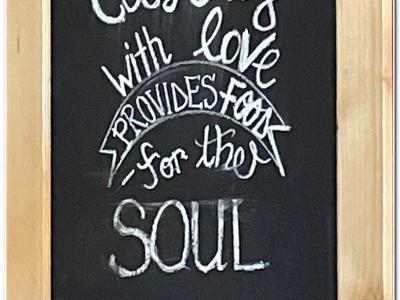 with love
PROVIDES FOOD
-for the-
SOUL